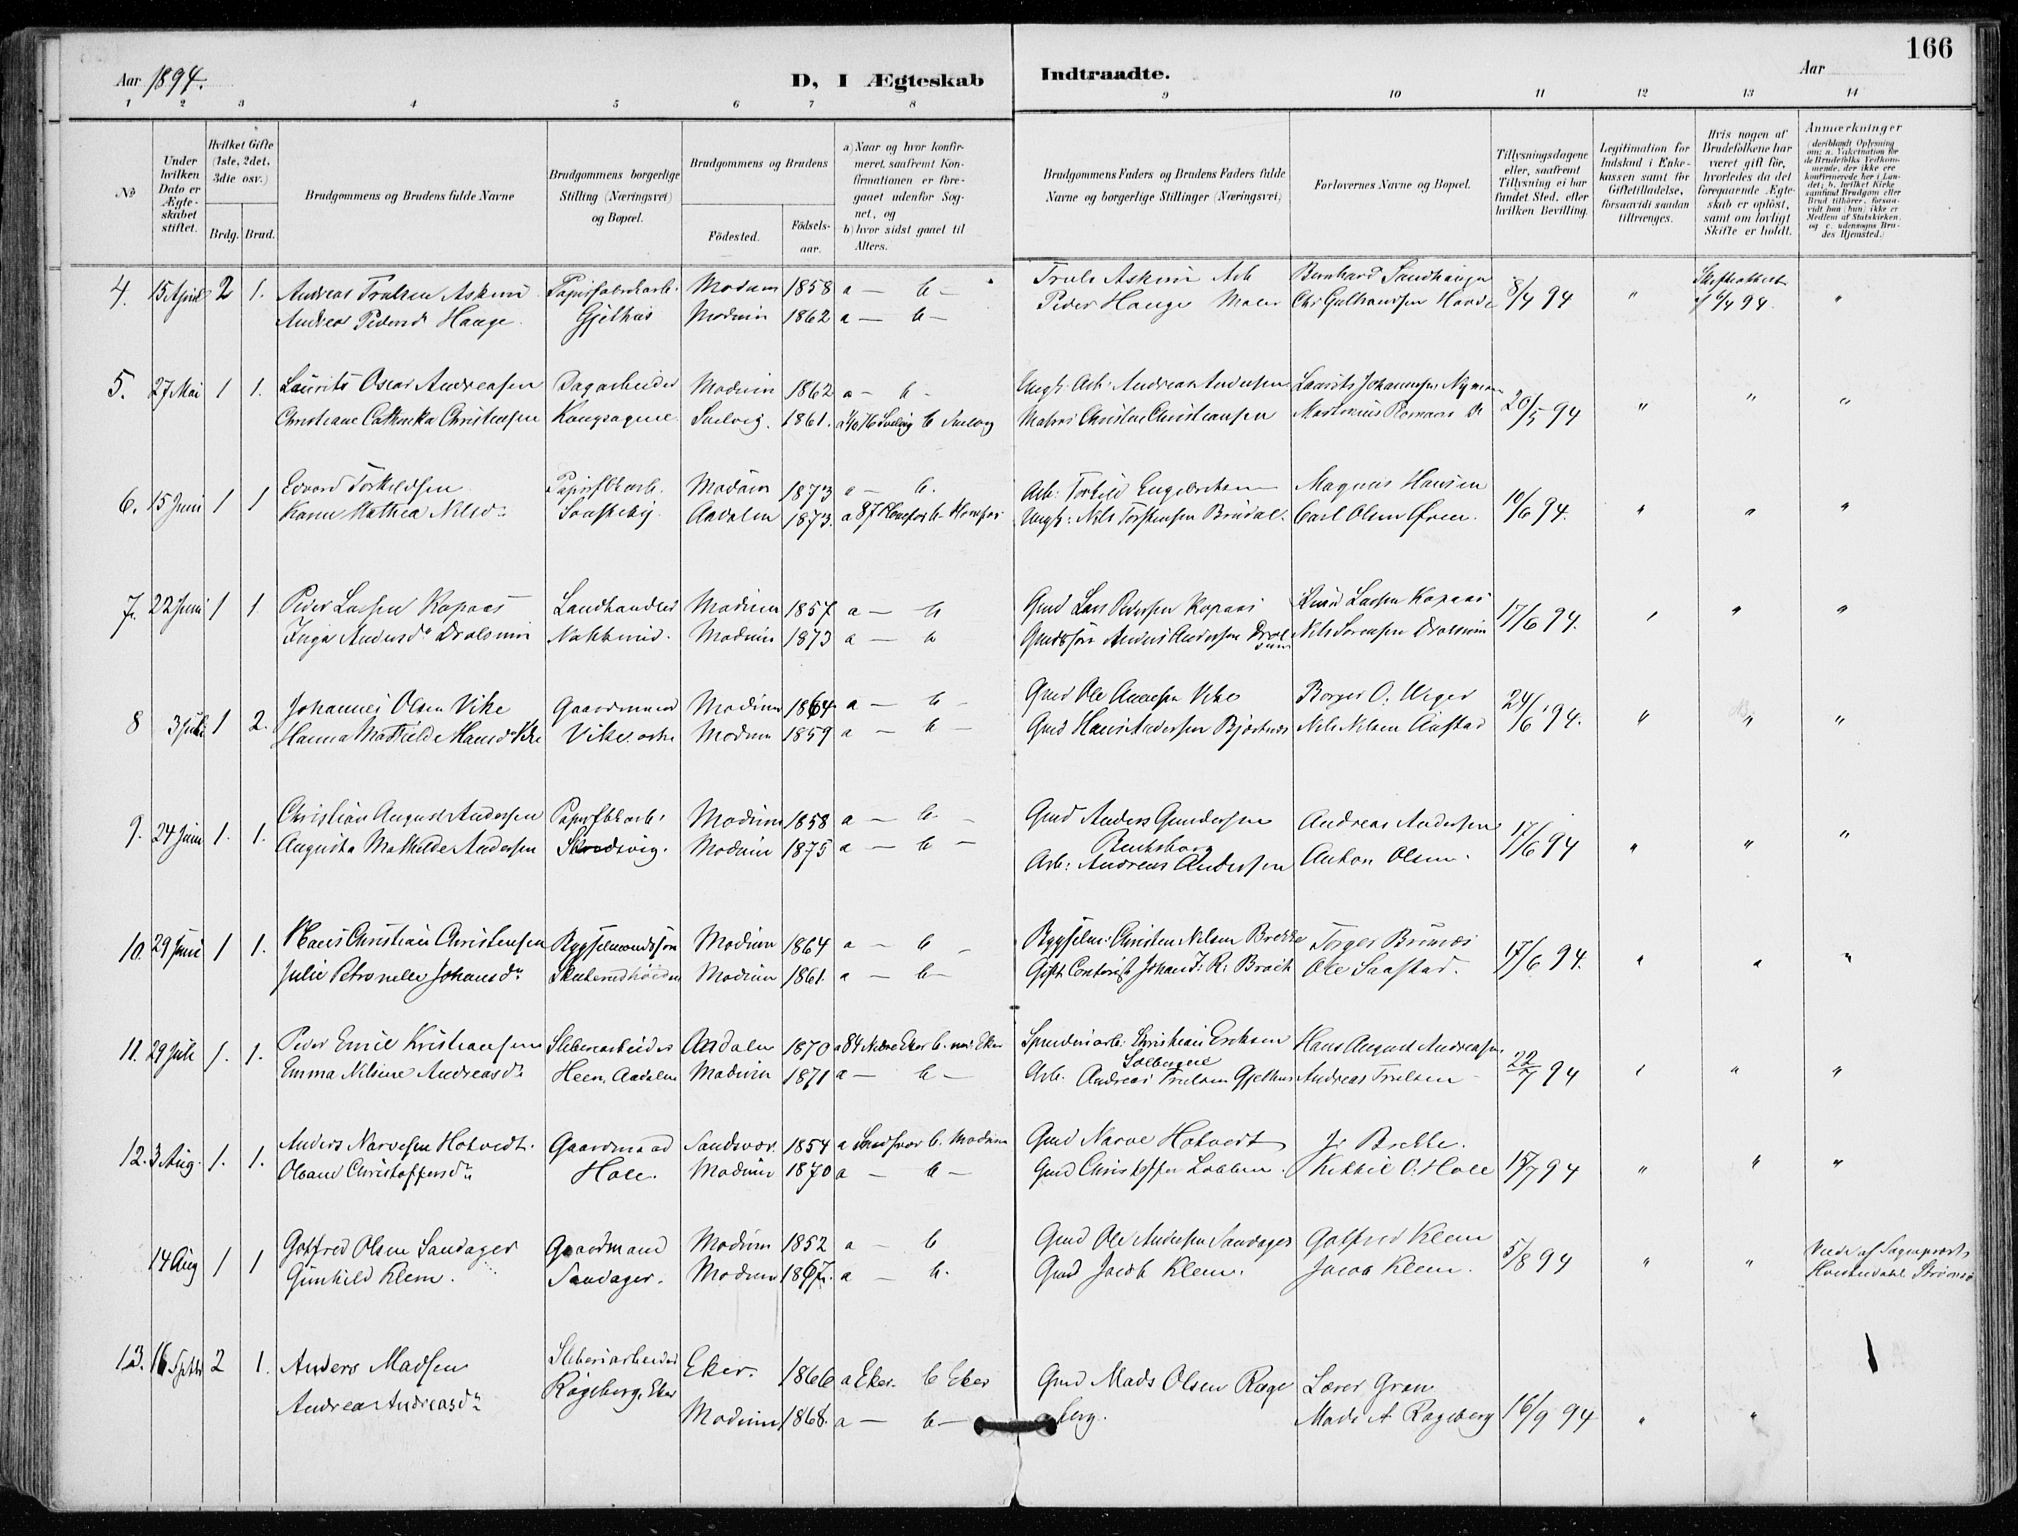 166
Aar 1894.
D, I Ægteskab Indtraadte.
Aar
1 2 3 4 5 6 7 8 9 10 11 12 13 14
№
Under hvilken Dato er Ægteskabet stiftet.
Hvilket Gifte (1ste, 2det, 3die osv.)
Brdg. Brud.
Brudgommens og Brudens fulde Navne
Brudgommens borgerlige Stilling (Næringsvei) og Bopæl.
Brudgommens og Brudens
Fødested. Fødsels-aar.
a) Naar og hvor konfirmeret, saafremt Konfirmationen er foregaaet udenfor Sognet, og
b) hvor sidst gaaet til Alters.
Brudgommens Faders og Brudens Faders fulde Navne og borgerlige Stillinger (Næringsvei)
Forlovernes Navne og Bopæl.
Tillysningsdagene eller, saafremt Tillysning ei har fundet Sted, efter hvilken Bevilling.
Legitimation for Indskud i Enkekassen samt for Giftetilladelse, forsaavidt saadan tiltrænges.
Hvis nogen af Brudefolkene har været gift før, hvorledes da det foregaaende Ægteskab er opløst, samt om lovligt Skifte er holdt.
Anmærkninger (deriblandt Oplysning om: a. Vakcination for de Brudefolks Vedkommende, der ikke ere konfirmerede her i Landet; b. hvilket Kirkesamfund Brudgom eller Brud tilhører, forsaavidt han (hun) ikke er Medlem af Statskirken, og c. udensogns Brudes Hjemsted.)
4. 15 April 2 1. Andreas Trulsen Askim Papirfabrikarb. Modum 1858 a — b — Truls Askim Arb Bernhard Sandhaugen 8/4 94 " Skifteattest "
Andrea Pedersd Hauge. Gjethus Modum 1862 a — b — Peder Hauge Maler Chr Gulbrandsen Hovde af 6/4 94.
5. 27 Mai 1 1. Laurits Oscar Andreasen Dagarbeider Modum 1862 a — b — Ungk. Arb. Andreas Andersen Laurits Johannesen Nyman 20/5 94 " " "
Christiane Cathinka Christensen Kongsagene Svelvig. 1861. Svelvig b Svelvig Matros Christen Christiansen
6. 15 Juni 1 1 Edvard Torkildsen Papirfbkarb. Modum 1873 a — b. Arb: Torkild Engebretsen Magnus Hansen 10/6 94. " " "
Karen Mathea Nilsd: Aadalen 1873. a 87 Honefos b. Honefos Ungk: Nils Torstensen Carl Olsen Øren.
7. 22 Juni 1 1. Peder Larsen Kopaas Landhandler Modum 1857 a — b Gmd Lars Pedersen Kopaas Knud Larsen Kopaas 17/6 94. " " "
Inga Andersdr Drolsum Nakkerud. Modum 1873 a — b Anders Andersen Drolsum Nils Sorensen Drolsum
8 3 Juli 1 2. Johannes Olsen Vike Gaardmand Modum 1864. a — b — Gmd Ole Vike Borger O. 24/6 94. " " "
Hanna Mathilde Hansdr Vike Vike østre Modum 1859 a — b — Gmd Hans Andersen Bjertnæs Nils Nilsen
9. 24 Juni 1. 1. Christian August Andersen Papirfbkarb. Modum 1858 a — b — Gmd Anders Gundersen Andreas Andersen 17/6 94 " " "
Augusta Mathilde Andersen Modum 1875 a — b — Arb: Andreas Andersen Anton Olsen.
10. 29 Juni 1 1. Hans Christian Christensen Bygselmandssøn Modum 1864 a — b — Bygselm: Christen Nilsen Brekke Torger 17/6 94. " " "
Julie Petronelle Johansdr Modum 1861. a — b — Contorist Johan F. R. Ole Saastad.
11. 29 Juli 1. 1. Peder Emil Kristiansen Sliberiarbeider Aadalen 1870 a 84 Nedre Eker b. ned. Eker Christian Eriksen Solbergene Hans August Andreasen 22/7 94 " " "
Emma Nilsine Andreasdr Heen, Aadalen Modum 1871 a — b — Arb. Andreas Trulsen Gjethus Andreas Trulsen
12. 3 Aug. 1. 1. Anders Narvesen Hotvedt. Gaardmand Sandsvær. 1854 a Sandsvær b. Modum Gmd Narve Hotvedt Brekke. 15/7 94 " " "
Olsand Christoffersdr Hole. Modum 1870 a — b — Gmd Christoffer Lobben Kittil O. Hole
14 Aug 1 1 Gotfred Olsen Sandager Gaardmand Modum 1852 a — b Gmd Ole Andersen Sandager Gotfred Kleen 5/8 94 " " Viede af Sogneprest
Gunhild Klem. Sandager. Modum 1867. a — b. Gmd Jacob Klem. Jacob Klem.
13. 16 Septbr 2 1. Anders Madsen Sliberiarbeider Eker. 1866 a Eker. b Eker Gmd Mads Olsen Rageberg. Lærer Gran 16/9 94 " "
Andrea Andreasdr Rageberg, Eker Modum 1868. a — b — Mads A Rageberg